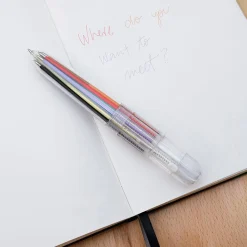 Where do you
want to
meet?